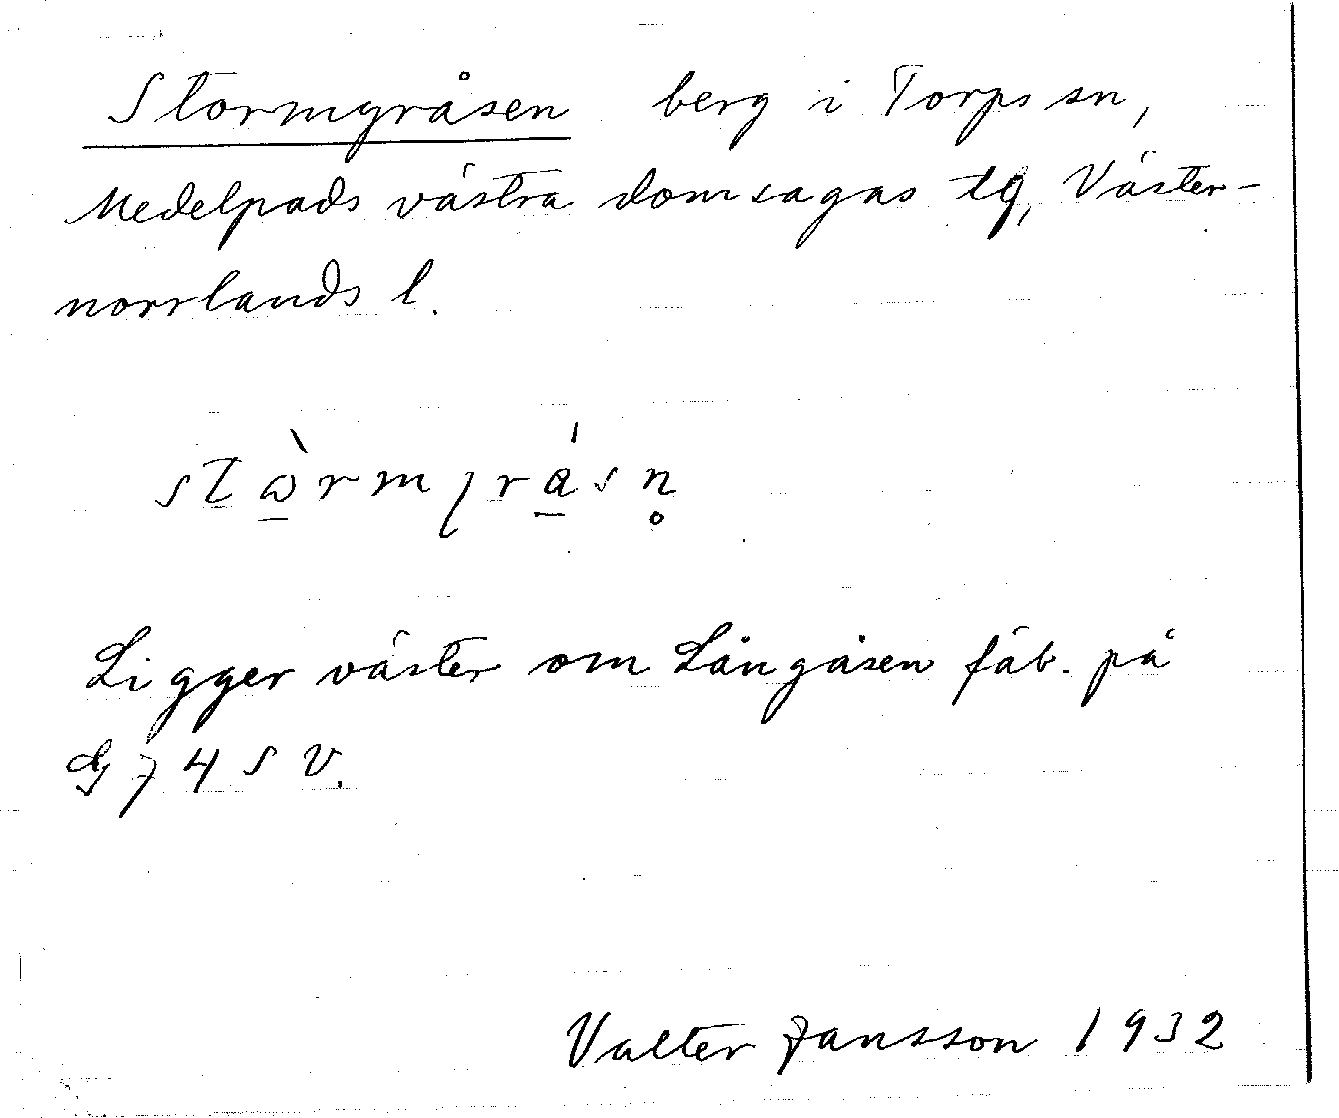 Stormgråsen berg i Torps sn,
Medelpads västra domsagas tg, Väster-
norrlands l.
Ligger väster om Långåsen fäb. på
G 74 S V.
Valter Jansson 1932